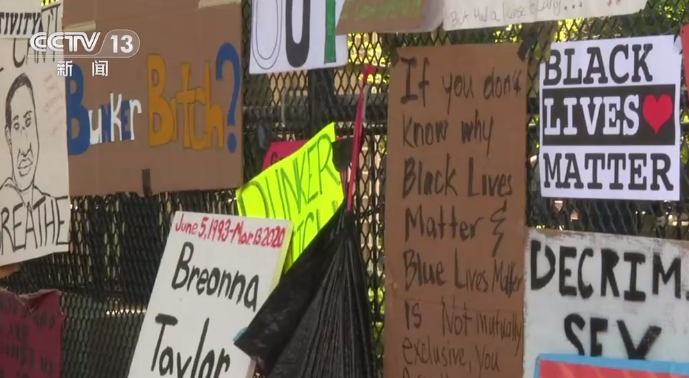 CCTV 13
新闻
BREATHE
Bunker Bitch?
OUT
BUNKER
June 5,1993-Mar 13 2020
Breonna
Taylor
If you don't
know why
Black Lives
Matter &
Blue Lives Matter
Is Not mutually
exclusive, You
BLACK
LIVES
MATTER
DECRIM
SEX